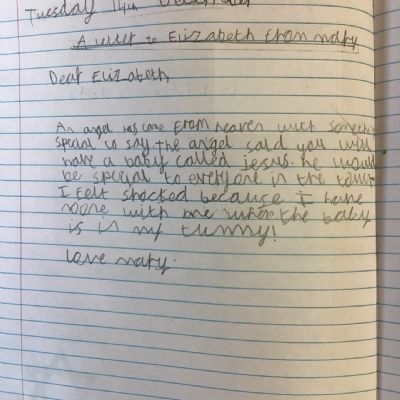 Tuesday 14th December
A letter to Elizabeth from mary
Dear Elizabeth,
An angel has come from heaven with something
special to say the angel said you will
have a baby called jesus. he would
be special to everyone in the town
I felt shocked because I have
noone with me when the baby
is in my tummy!
love mary.